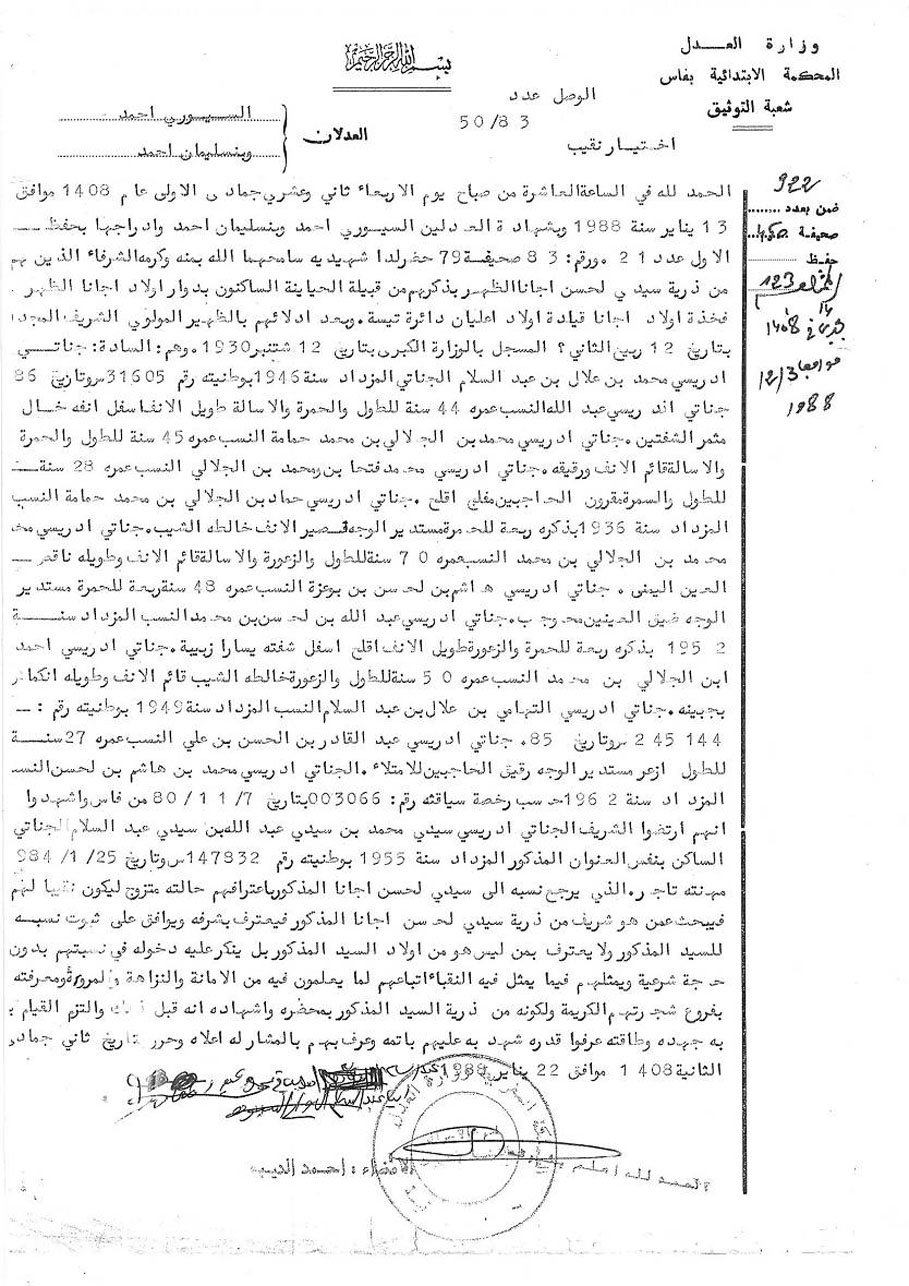 وزارة العـــدل
المحكمة الابتدائية بفاس
شعبة التوثيق
بسم الله الرحمن الرحيم
الوصل عدد
50/83
اختيار نقيب
العدلان
السيوري احمد
وبنسليمان احمد
922
ضمن بعدد
صحيفة
حفظ
123
1408
12/3
1988
الحمد لله في الساعة العاشرة من صباح يوم الاربعاء ثاني وعشري جمادى الاولى عام 1408 موافق
13 يناير سنة 1988 وبشهادة العدلين السيوري احمد وبنسليمان احمد وادراجها بحفظ
الاول عدد 21 ورقم: 83 صحيفة 79 حضر لدا شهيديه سامحهما الله بمنه وكرمه الشرفاء الذين هم
من ذرية سيدي لحسن اجانا الظهر بذكرهم من قبيلة الحياينة الساكنون بدوار اولاد اجانا الظهر
فخذة اولاد اجانا قيادة اولاد اعليان دائرة تيسة. وبعد ادلائهم بالظهير المولوي الشريف المجدد
بتاريخ 12 ربيع الثاني؟ المسجل بالوزارة الكبرى بتاريخ 12 شتنبر 1930. وهم: السادة: جناتي
ادريسي محمد بن علال بن عبد السلام الجناتي المزداد سنة 1946 بوطنيته رقم 31605س وتاريخ 86
جناتي اند ريسي عبد الله النسب عمره 44 سنة للطول والحمرة والاسالة طويل الانف اسفل انفه خال
مثمر الشفتين. جناتي ادريسي محمد بن الجلالي بن محمد حمامة النسب عمره 45 سنة للطول والحمرة
والاسالة قائم الانف ورقيقه. جناتي ادريسي محمد فتحا بن ومحمد بن الجلالي النسب عمره 28 سنة
للطول والسمرة مقرون الحاجبين مفلج اقلح. جناتي ادريسي حماد بن الجلالي بن محمد حمامة النسب
المزداد سنة 1936 بذكره ربعة للحمرة مستدير الوجه قصير الانف خالطه الشيب. جناتي ادريسي مح
محمد بن الجلالي بن محمد النسب عمره 70 سنة للطول والزعورة والاسالة قائم الانف وطويله ناقص
العين اليمنى. جناتي ادريسي هاشم بن لحسن بن بوعزة النسب عمره 48 سنة ربعة للحمرة مستدير
الوجه ضيق العينين محوجب. جناتي ادريسي عبد الله بن لحسن بن محمد النسب المزداد سنة
1952 بذكره ربعة للحمرة والزعورة طويل الانف اقلح اسفل شفته يسارا زبيبة. جناتي ادريسي احمد
ابن الجلالي بن محمد النسب عمره 50 سنة للطول والزعورة خالطه الشيب قائم الانف وطويله انكماش
بجبينه. جناتي ادريسي التهامي بن علال بن عبد السلام النسب المزداد سنة 1949 بوطنيته رقم:
144 245 س وتاريخ 85. جناتي ادريسي عبد القادر بن الحسن بن علي النسب عمره 27 سنة
للطول ازعر مستدير الوجه رقيق الحاجبين للامتلاء. الجناتي ادريسي محمد بن هاشم بن لحسن النسب
المزداد سنة 1962 حسب رخصة سياقته رقم: 003066 بتاريخ 80/11/7 من فاس واشهدوا
انهم ارتضوا الشريف الجناتي ادريسي سيدي محمد بن سيدي عبد الله بن سيدي عبد السلام الجناتي
الساكن بنفس العنوان المذكور المزداد سنة 1955 بوطنيته رقم 147832س وتاريخ 984/1/25
مهنته تاجر. الذي يرجع نسبه الى سيدي لحسن اجانا المذكور باعترافهم حالته متزوج ليكون نقيبا لهم
فيبحث عمن هو شريف من ذرية سيدي لحسن اجانا المذكور فيعترف بشرفه ويوافق على ثبوت نسبه
للسيد المذكور ولا يعترف بمن ليس هو من اولاد السيد المذكور بل ينكر عليه دخوله في نسبتهم بدون
حجة شرعية ويمثلهم فيما يمثل فيه النقباء اتباعهم لما يعلمون فيه من الامانة والنزاهة والمروءة ومعرفته
بفروع شجرتهم الكريمة ولكونه من ذرية السيد المذكور بمحضره واشهاده انه قبل ذلك والتزم القيام
به جهده وطاقته عرفوا قدره شهد به عليهم باتمه وعرف بهم بالمشار له اعلاه وحرر بتاريخ ثاني جمادى
الثانية 1408 موافق 22 يناير 1988
الامضاء: احمد